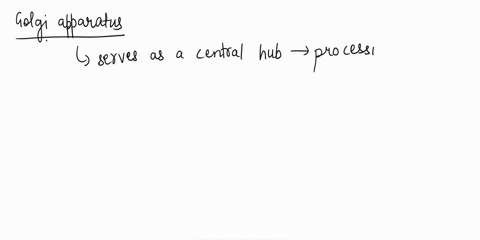 Golgi apparatus
↳ serves as a central hub → processi